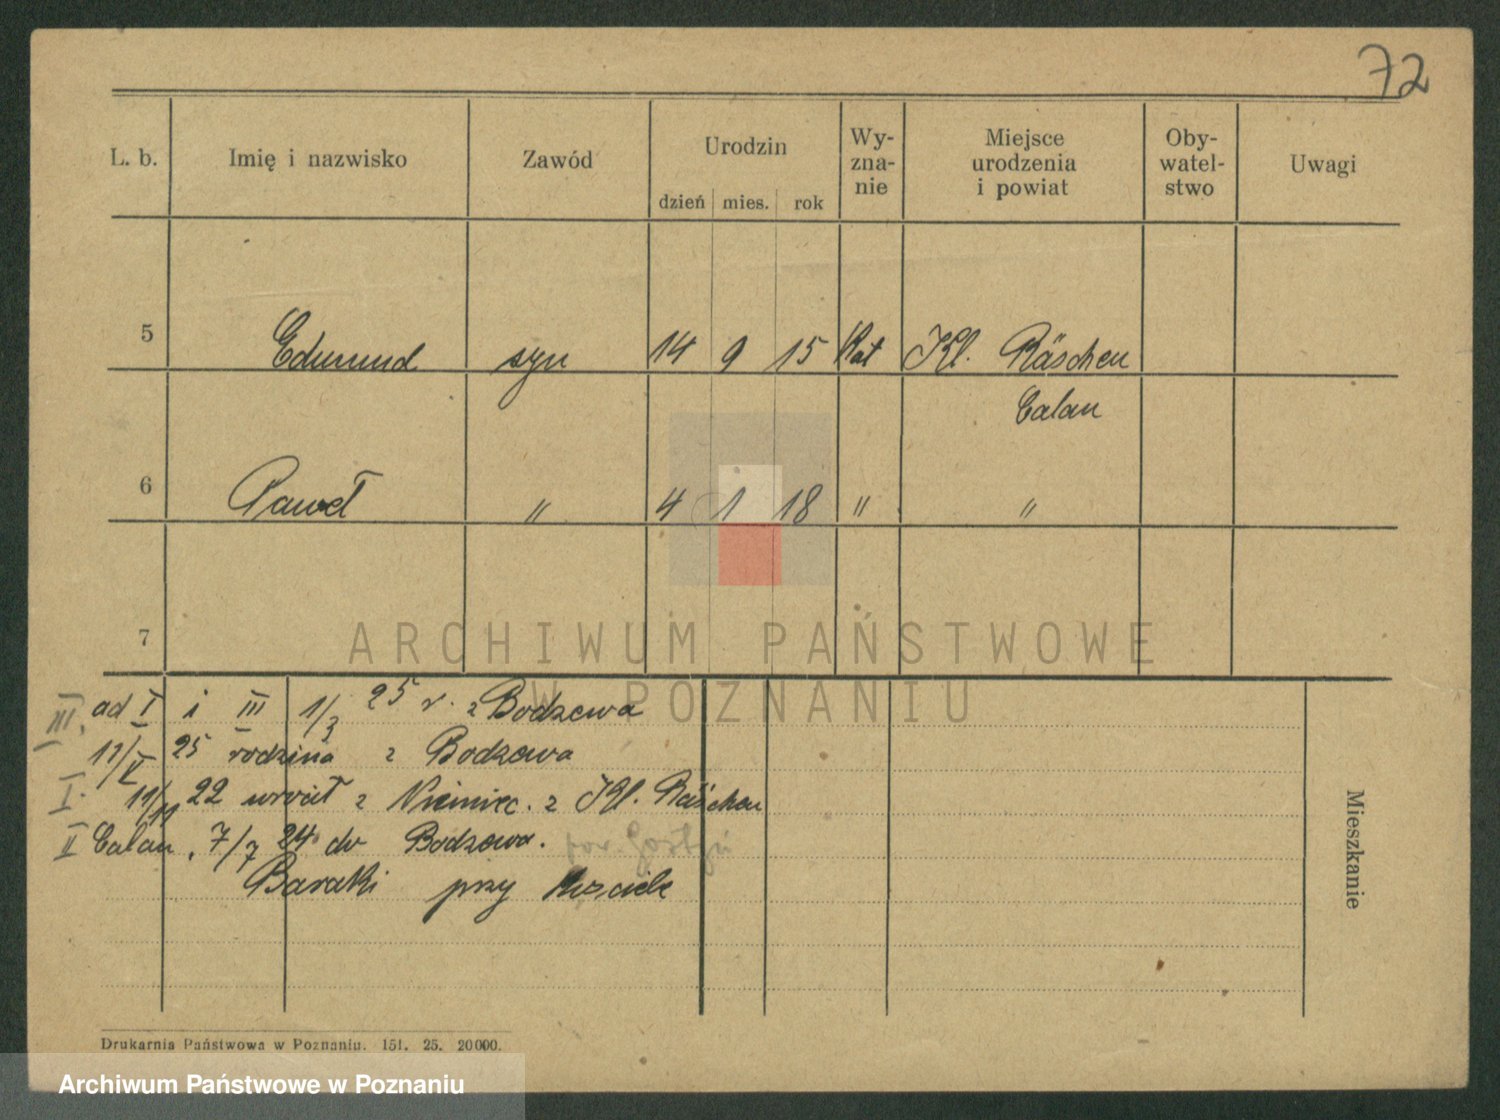 72
L. b. Imię i nazwisko Zawód Urodzin dzień mies. rok Wy-zna-nie Miejsce urodzenia i powiat Oby-watel-stwo Uwagi
5 Edmund syn 14 9 15 Kat Kl. Räschen
Calau
6 Paweł " 4 1 18 " "
7
ARCHIWUM PAŃSTWOWE
W POZNANIU
III. ad I i III 1/3 25 r. z Bodzewa
11/V 25 rodzina z Bodzewa
I. 11/11 22 wrócił z Niemiec. z Kl. Räschen
II Calau, 7/7 24 do Bodzewa. pow. Gostyń
Baraki przy
Mieszkanie
Drukarnia Państwowa w Poznaniu. 151. 25. 20000.
Archiwum Państwowe w Poznaniu